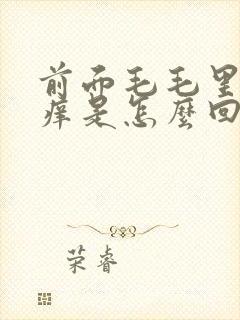 前面毛毛里
痒是怎麼回
荣睿